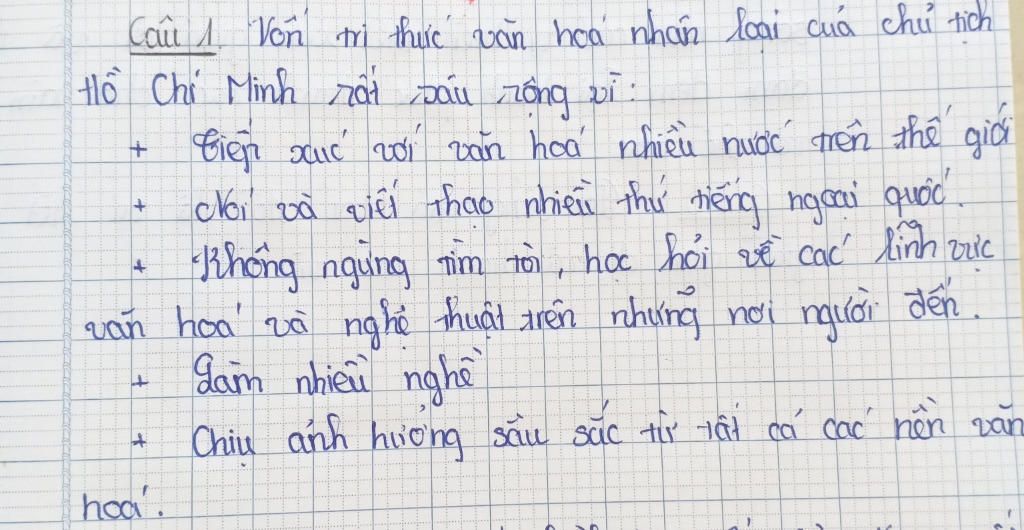 Câu 1. Vốn tri thức văn hoá nhân loại của chủ tịch
Hồ Chí Minh rất sâu rộng vì:
+ Tiếp xúc với văn hoá nhiều nước trên thế giới
+ Nói và viết thạo nhiều thứ tiếng ngoại quốc.
+ Không ngừng tìm tòi, học hỏi về các lĩnh vực
văn hoá và nghệ thuật trên những nơi người đến.
+ Làm nhiều nghề
+ Chịu ảnh hưởng sâu sắc từ tất cả các nền văn
hoá.